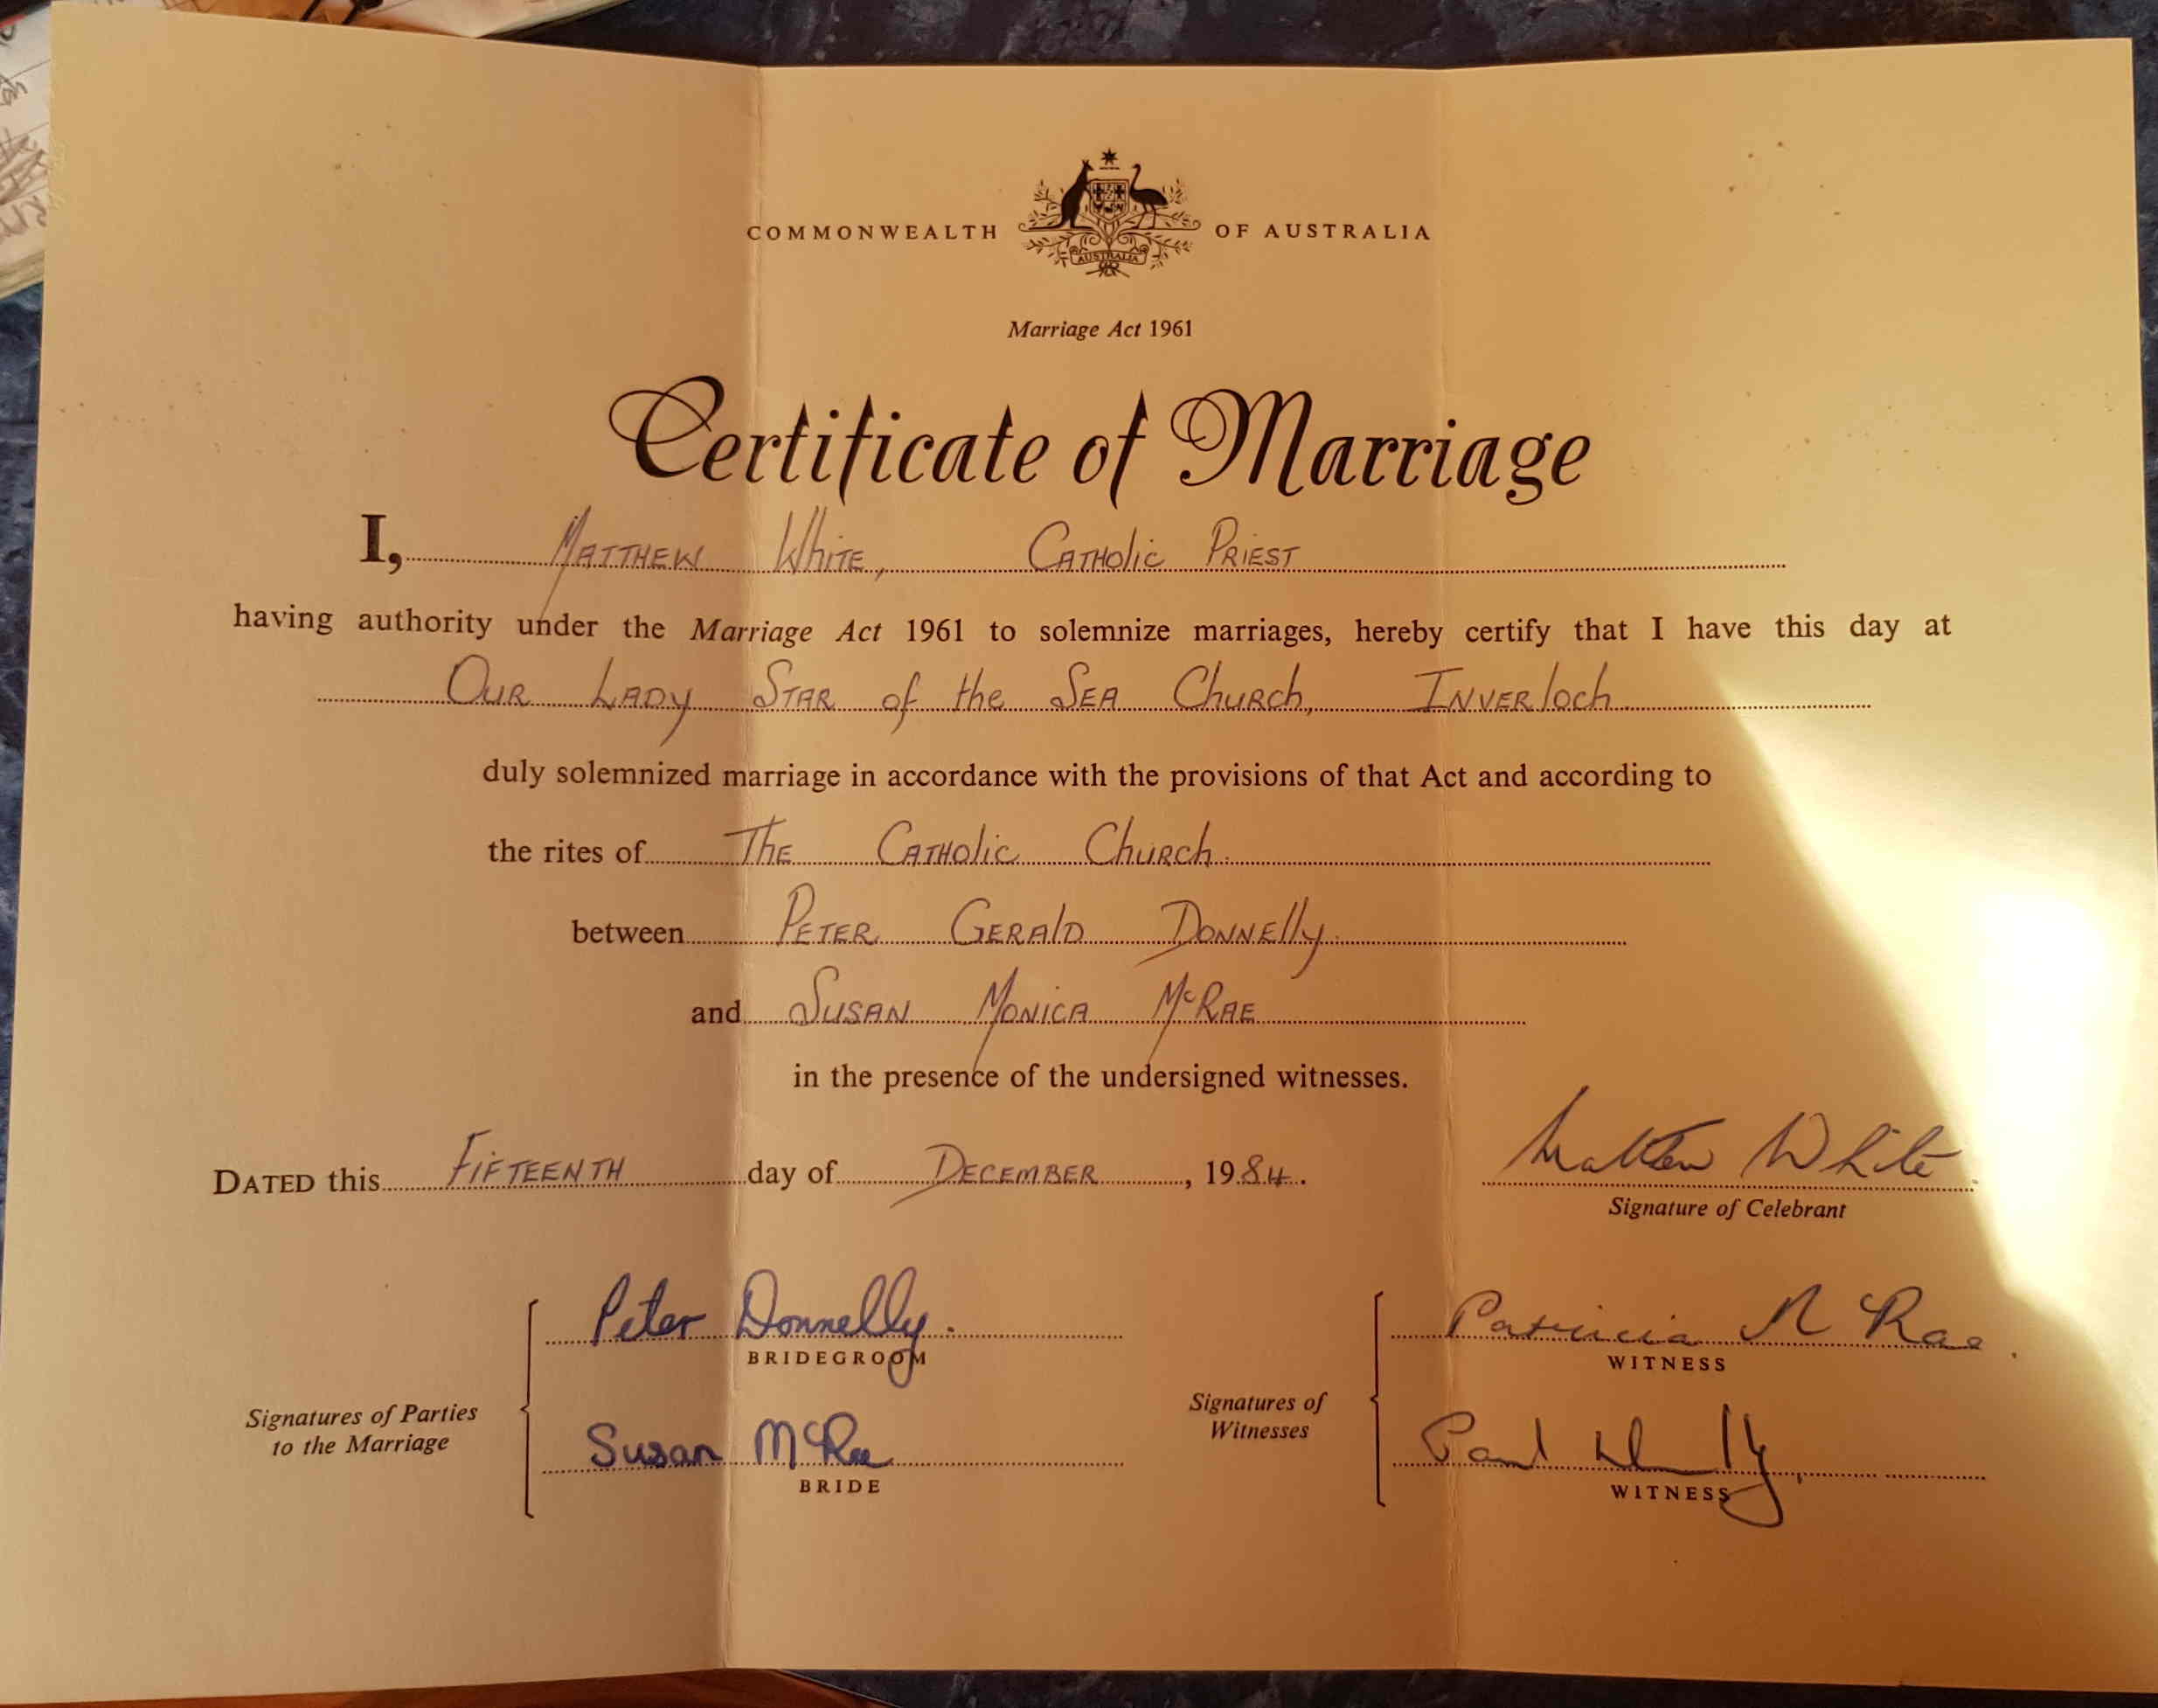 COMMONWEALTH OF AUSTRALIA
AUSTRALIA
Marriage Act 1961
Certificate of Marriage
I, MATTHEW WhiTE, CATHOLIC PRIEST
having authority under the Marriage Act 1961 to solemnize marriages, hereby certify that I have this day at
OUR LADY STAR of the SEA ChURCh, INVERloch.
duly solemnized marriage in accordance with the provisions of that Act and according to
the rites of ThE CATHOLIC ChURCh.
between PETER GERAlD DONNElly.
and SUSAN MONICA McRAE
in the presence of the undersigned witnesses.
DATED this FIFTEENTH day of DECEMBER, 1984.
Matthew White
Signature of Celebrant
Signatures of Parties
to the Marriage
Peter Donnelly.
BRIDEGROOM
Susan McRae
BRIDE
Signatures of
Witnesses
Patricia M Rae
WITNESS
Paul
WITNESS